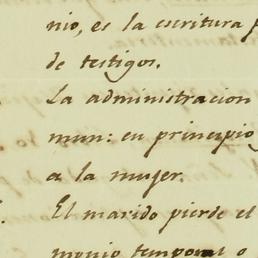 nio, es la escritura p
de testigos.
La administracion
mun: en principio
a la muger.
El marido pierde el
monio temporal o